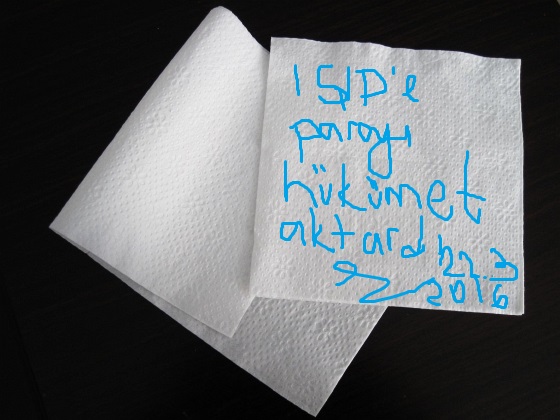 IŞİD'e
parayı
hükümet
aktardı
22.3
2016